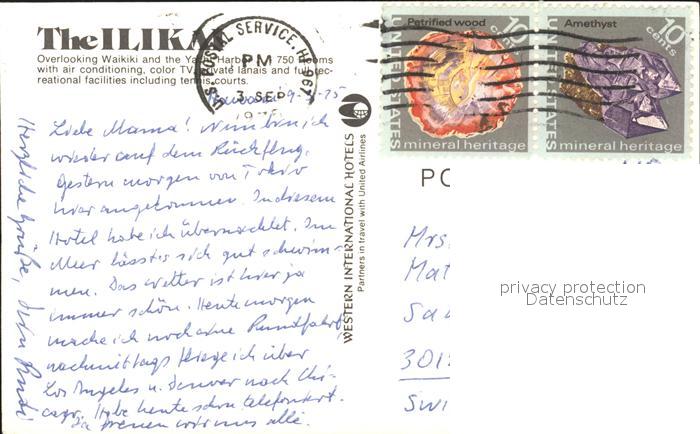 The ILIKAI
Overlooking Waikiki and the Yacht Harbor. 750 rooms
with air conditioning, color TV, private lanais and full rec-
reational facilities including tennis courts.
U.S. POSTAL SERVICE, HI 967
PM
3 SEP
Petrified wood
10 cents
UNITED STATES
mineral heritage
Amethyst
10 cents
UNITED STATES
mineral heritage
9-3-75
Liebe Mama! Nun bin ich
wieder auf dem Rückflug.
Gestern morgen von Tokio
hier angekommen. In diesem
Hotel habe ich übernachtet. Im
Meer lässt es sich gut schwim-
men. Das Wetter ist hier ja
immer schön. Heute morgen
mache ich noch eine Rundfahrt
nachmittags fliege ich über
Los Angeles u. Denver nach Chi-
cago. Habe heute schon telefoniert.
Da freuen wir uns alle.
Herzliche Grüße, Dein
WESTERN INTERNATIONAL HOTELS
Partners in travel with United Airlines
PO
Mrs.
Mat
Sa
301
Swi
privacy protection
Datenschutz